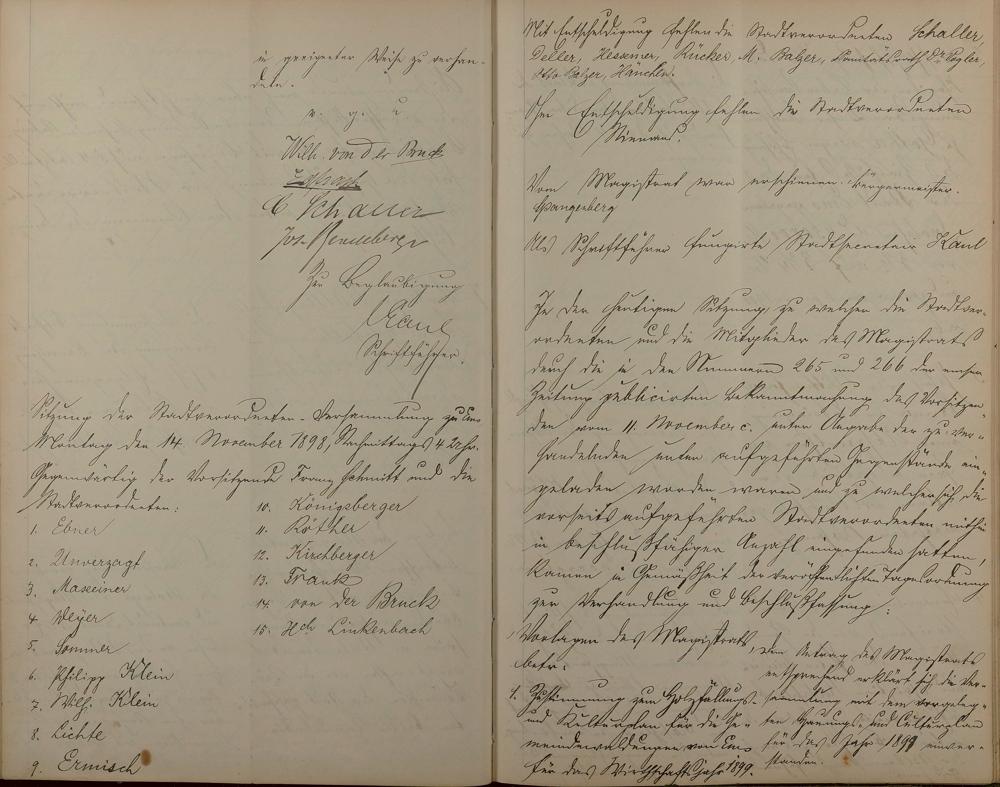 in geeigneter Weise zu verhan-
deln.
v. g. u
Wilh. von der Bruck
C Schaller
Jos. Henneberger
Zur Beglaubigung
Kaul
Schriftführer.
Sitzung der Stadtverordneten-Versammlung zu Ems
Montag den 14. November 1898, Nachmittags 4 Uhr.
Gegenwärtig der Vorsitzende Franz Schmitt und die
Stadtverordneten:
1. Ebner
2. Unverzagt
3. Masseiner
4. Weyer
5. Sommer
6. Philipp Klein
7. Wilh. Klein
8. Lichte
9. Ermisch
10. Königsberger
11. Röther
12. Kirchberger
13. Frank
14. von der Bruck
15. Hch Linkenbach
Mit Entschuldigung fehlen die Stadtverordneten Schaller,
Deller, Hessemer, Rücker, M. Balzer, Sanitätsrath Dr. Vogler,
Otto Balzer, Hänchen.
Ohne Entschuldigung fehlen die Stadtverordneten
Niemand.
Vom Magistrat war erschienen: Bürgermeister
Spangenberg
Als Schriftführer fungirte Stadtsecretair Kaul
In der heutigen Sitzung, zu welcher die Stadtver-
ordneten und die Mitglieder des Magistrats
durch die in den Nummern 265 und 266 der emser
Zeitung publicirten Bekanntmachung des Vorsitzen-
den vom 11. November c. unter Angabe der zu ver-
handelnden unten aufgeführten Gegenstände ein-
geladen worden waren und zu welcher sich die
vorseits aufgeführten Stadtverordneten mithin
in beschlußfähiger Anzahl eingefunden hatten,
kamen in Gemäßheit der veröffentlichten Tagesordnung
zur Verhandlung und Beschlußfassung:
Vorlagen des Magistrats,
betr:
1. Zustimmung zum Holzfällungs-
und Kulturplan für die Ge-
meindewaldungen von Ems
für das Wirthschaftsjahr 1899.
Dem Antrag des Magistrats
entsprechend erklärt sich die Ver-
sammlung mit dem vorgeleg-
ten Hauungs- und Culturplan
für das Jahr 1899 einver-
standen.